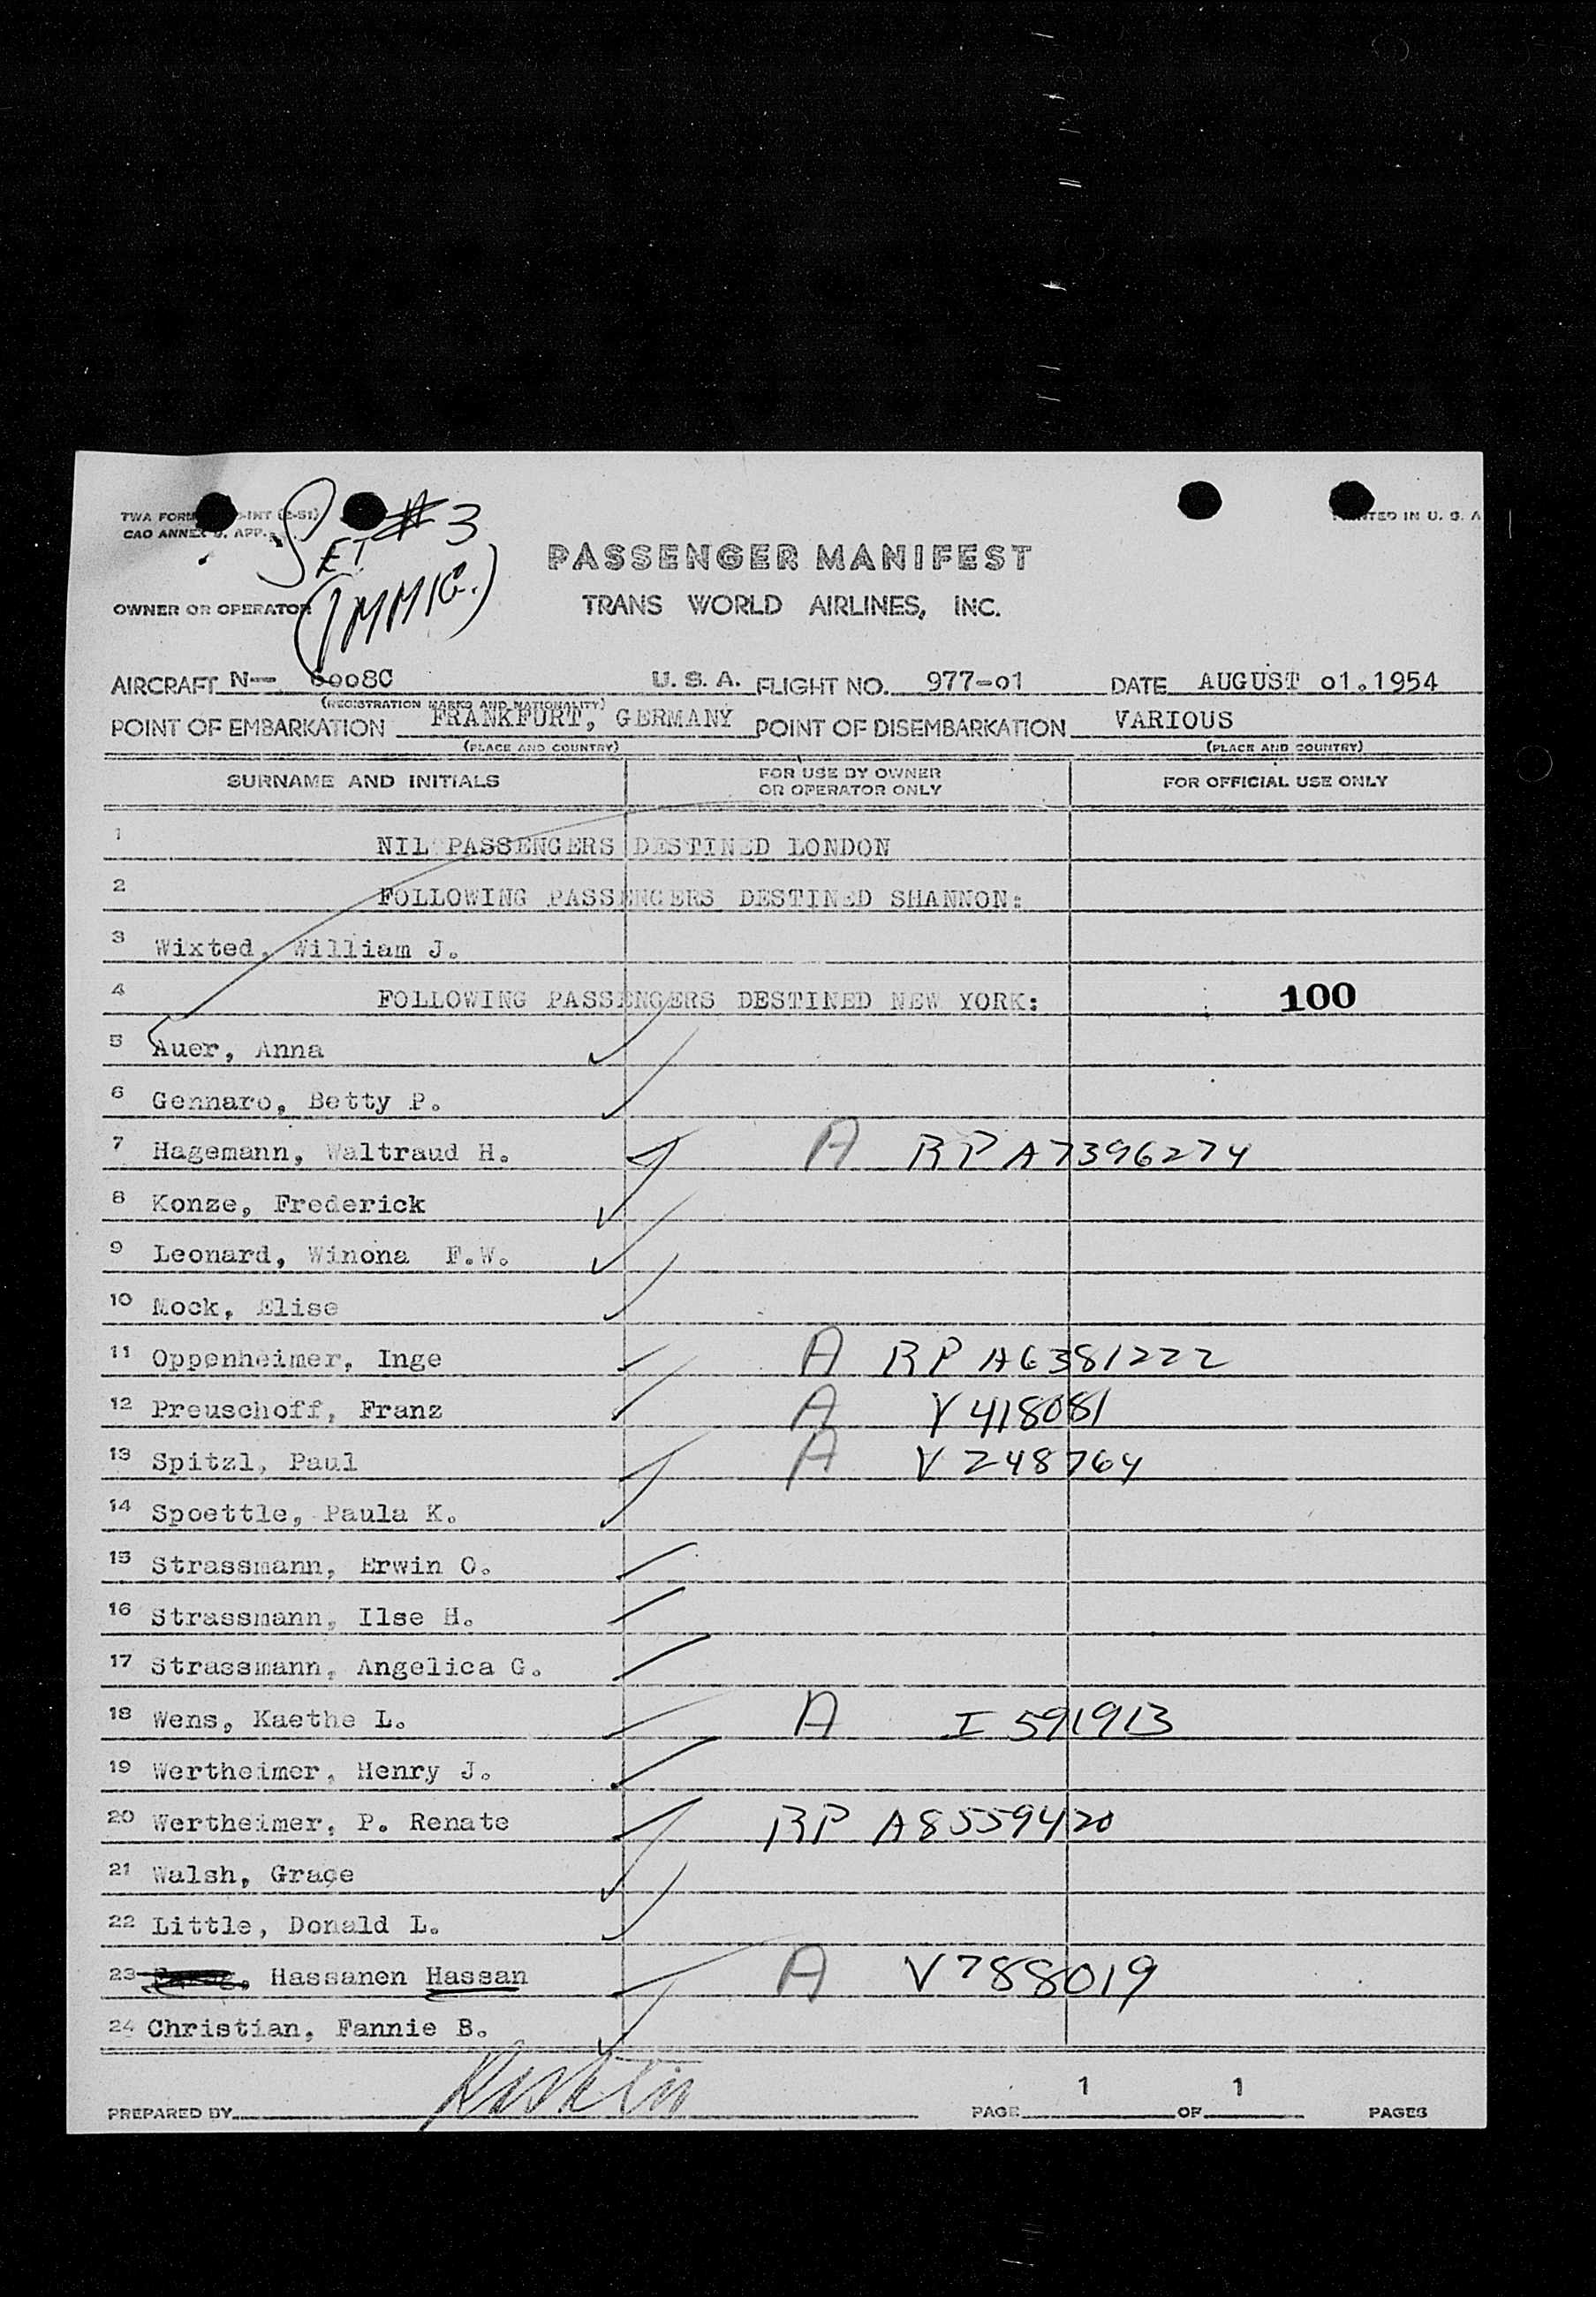 TWA FORM -INT (2-51)
CAO ANNEX 9, APP.
PRINTED IN U. S. A
SET #3
(IMMIG.)
PASSENGER MANIFEST
OWNER OR OPERATOR
TRANS WORLD AIRLINES, INC.
AIRCRAFT N— 6008C U. S. A. FLIGHT NO. 977-01 DATE AUGUST 01.1954
(REGISTRATION MARKS AND NATIONALITY)
POINT OF EMBARKATION FRANKFURT, GERMANY POINT OF DISEMBARKATION VARIOUS
(PLACE AND COUNTRY) (PLACE AND COUNTRY)
SURNAME AND INITIALS FOR USE BY OWNER OR OPERATOR ONLY FOR OFFICIAL USE ONLY
1 NIL PASSENGERS DESTINED LONDON
2 FOLLOWING PASSENGERS DESTINED SHANNON:
3 Wixted, William J.
4 FOLLOWING PASSENGERS DESTINED NEW YORK: 100
5 Auer, Anna
6 Gennaro, Betty P.
7 Hagemann, Waltraud H. A RP A7396274
8 Konze, Frederick
9 Leonard, Winona F.W.
10 Mock, Elise
11 Oppenheimer, Inge A RP A6381222
12 Preuschoff, Franz A V 418081
13 Spitzl, Paul A V 248764
14 Spoettle, Paula K.
15 Strassmann, Erwin O.
16 Strassmann, Ilse H.
17 Strassmann, Angelica G.
18 Wens, Kaethe L. A I 591913
19 Wertheimer, Henry J.
20 Wertheimer, P. Renate RP A8559420
21 Walsh, Grace
22 Little, Donald L.
23 , Hassanen Hassan A V788019
24 Christian, Fannie B.
PREPARED BY PAGE 1 OF 1 PAGES